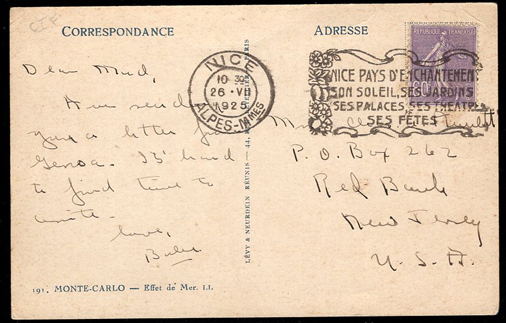 CORRESPONDANCE
ADRESSE
REPUBLIQUE FRANÇAISE
NICE
10 30
26 - VII
1925
ALPES-MMES
NICE PAYS D'ENCHANTEMENT
SON SOLEIL, SES JARDINS
SES PALACES, SES THEATRES
SES FÊTES
Dear Mud,
send
you a letter from
Genoa. It's hard
to find time to
write.
Love,
P. O. Box 262
Red Bank
New Jersey
U. S. A.
LÉVY & NEURDEIN RÉUNIS — 44,
191. MONTE-CARLO — Effet de Mer. LL.